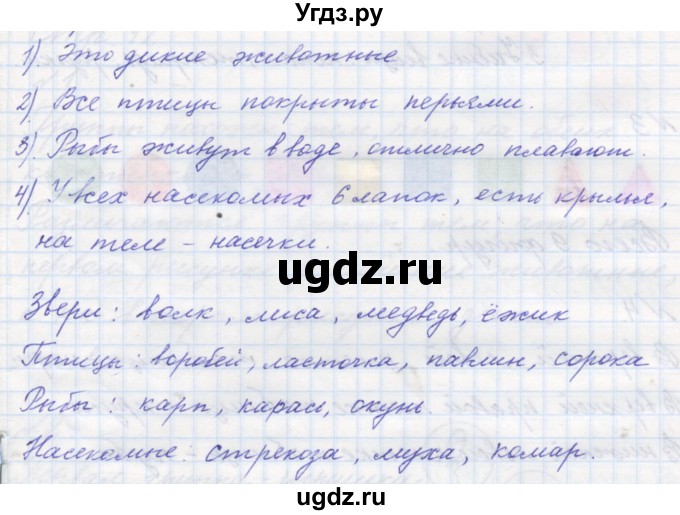 Угдз.ру
1). Это дикие животные
2) Все птицы покрыты перьями.
3) Рыбы живут в воде, отлично плавают.
4) У всех насекомых 6 лапок, есть крылья,
на теле - насечки.
ugdz.ru
Звери: волк, лиса, медведь, ёжик
Птицы: воробей, ласточка, павлин, сорока
Рыбы: карп, карась, окунь.
Насекомые: стрекоза, муха, комар.
ugdz.ru